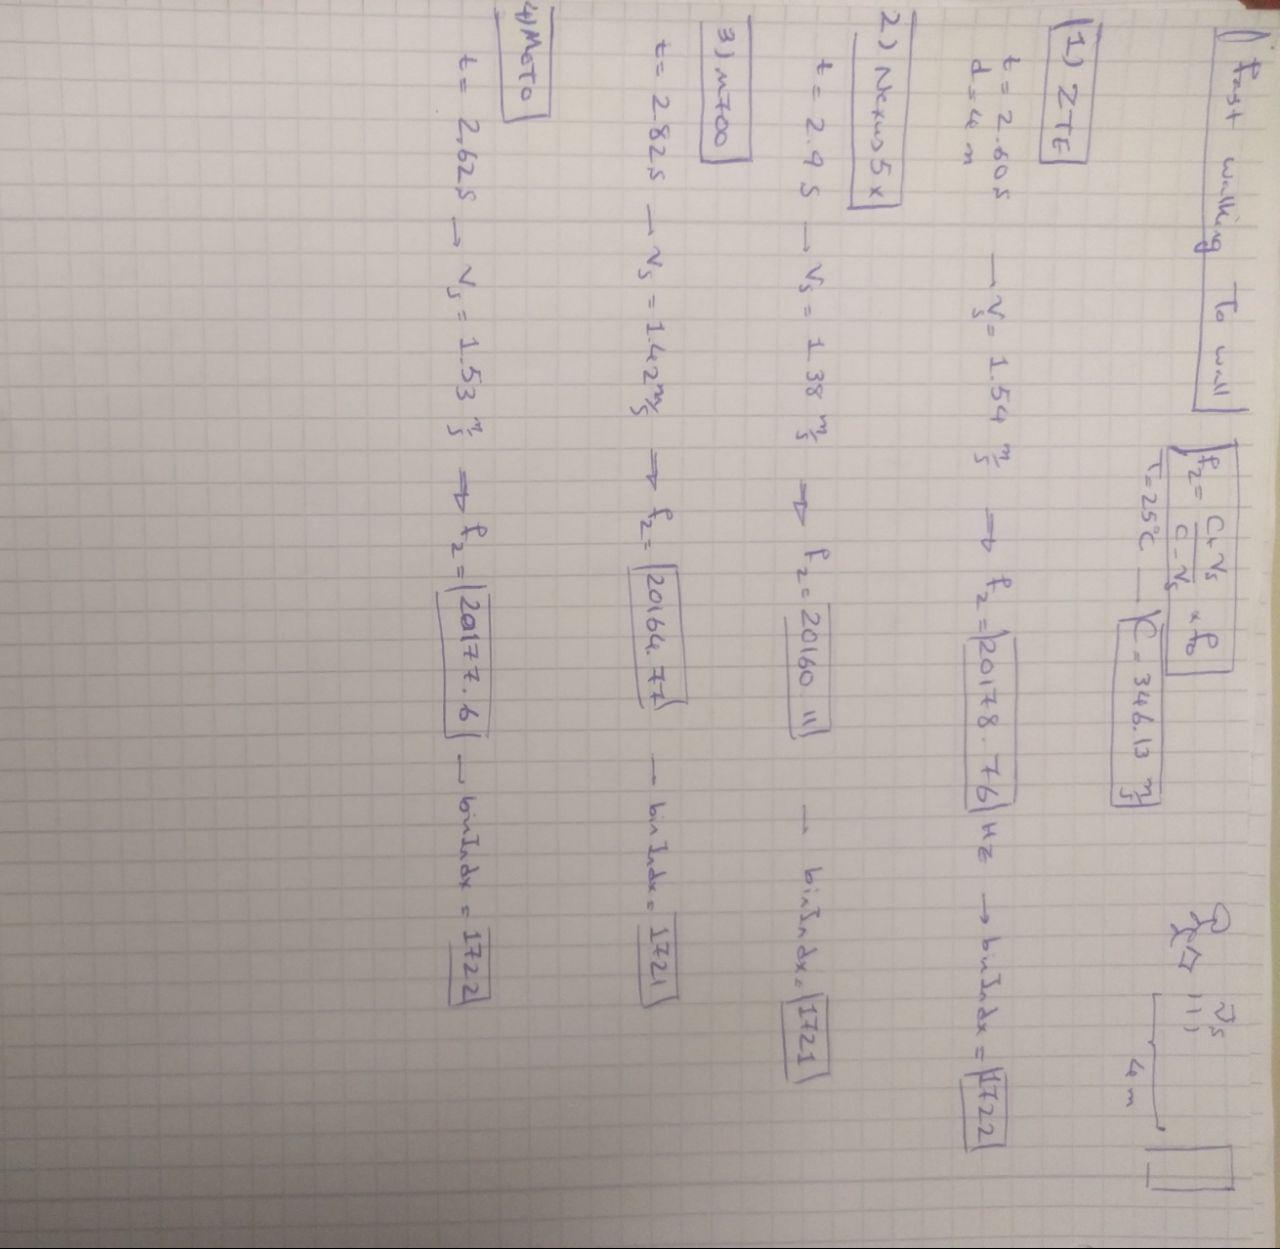 Fast walking To wall
f₂ = (C + Vs / C - Vs) × f₀
T = 25°C — C = 346.13 m/s
Vs
4 m
1) ZTE
t = 2.60 s → Vs = 1.54 m/s ⇒ f₂ = 20178.76 HZ → binIndx = 1722
d = 4 m
2) Nexus 5x
t = 2.9 s → Vs = 1.38 m/s ⇒ f₂ = 20160.11 → binIndx = 1721
3) M700
t = 2.82 s → Vs = 1.42 m/s ⇒ f₂ = 20164.77 → binIndx = 1721
4) MOTO
t = 2.62 s → Vs = 1.53 m/s ⇒ f₂ = 20177.6 → binIndx = 1722